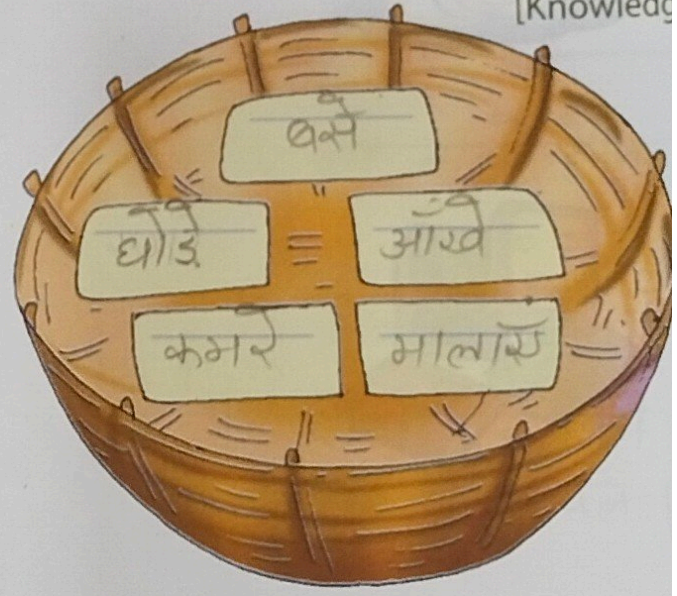 [Knowledg
बसें
घोड़े
आँखें
कमरे
मालाएँ